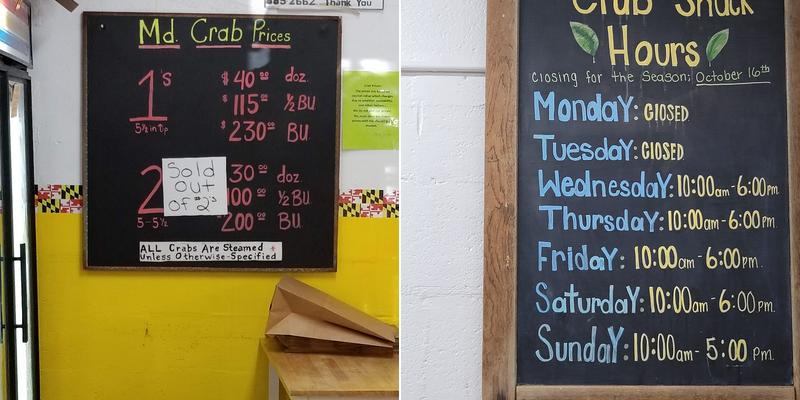 385 2662 Thank You
Md. Crab Prices
1's $40.00 doz.
$115.00 ½ BU.
5½ in Up $230.00 BU.
Sold
out
of #2's
2 30.00 doz.
100.00 ½ BU.
5-5½ 200.00 BU.
ALL Crabs Are Steamed
Unless Otherwise-Specified
Crab Shack
Hours
Closing for the Season: October 16th
Monday: Closed
Tuesday: Closed
Wednesday: 10:00am-6:00pm
Thursday: 10:00am-6:00pm.
Friday: 10:00am-6:00pm.
Saturday: 10:00am-6:00pm.
Sunday: 10:00am-5:00 pm.